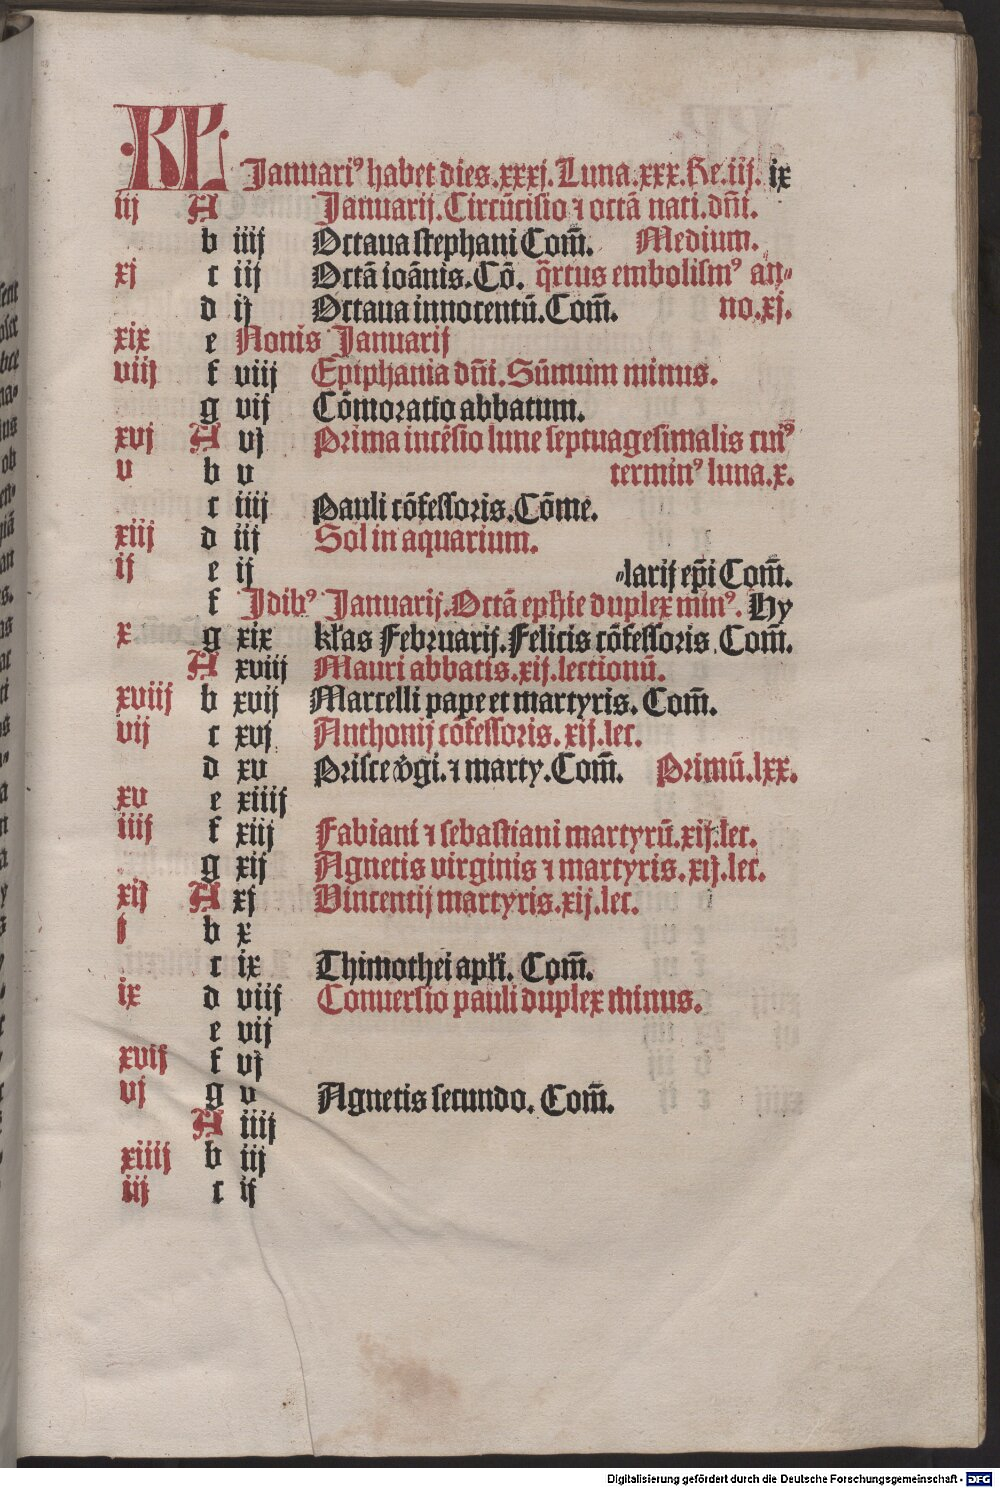 KL
Januariꝰ habet dies.xxxj.Luna.xxx.Re.iij. ix
iij A Januarij.Circūcisio ⁊ octā nati.dñi.
b iiij Octaua stephani Com̄. Medium.
xj c iij Octā ioānis.Cō. q̄rtus embolismꝰ an⸗
d ij Octaua innocentū.Com̄. no.xj.
xix e Nonis Januarij
viij f viij Epiphania dñi.Sūmum minus.
g vij Cōmoratio abbatum.
xvj A vj Prima incēsio lune septuagesimalis cuiꝰ
v b v terminꝰ luna.x.
c iiij Pauli cōfessoris.Cōme.
xiij d iij Sol in aquarium.
ij e ij ⸗larij ep̄i Com̄.
f Idibꝰ Januarij.Octā ep̄hie duplex minꝰ. Hy
x g xix kl̄as Februarij.Felicis cōfessoris.Com̄.
A xviij Mauri abbatis.xij.lectionū.
xviij b xvij Marcelli pape et martyris. Com̄.
vij c xvj Anthonij cōfessoris. xij.lec.
d xv Prisce v̄gi.⁊ marty.Com̄. Primū.lxx.
xv e xiiij
iiij f xiij Fabiani ⁊ sebastiani martyrū.xij.lec.
g xij Agnetis virginis ⁊ martyris. xij.lec.
xij A xj Vincentij martyris.xij.lec.
j b x
c ix Thimothei apl̄i. Com̄.
ix d viij Conuersio pauli duplex minus.
e vij
xvij f vj
vj g v Agnetis secundo. Com̄.
A iiij
xiiij b iij
iij c ij
Digitalisierung gefördert durch die Deutsche Forschungsgemeinschaft - DFG